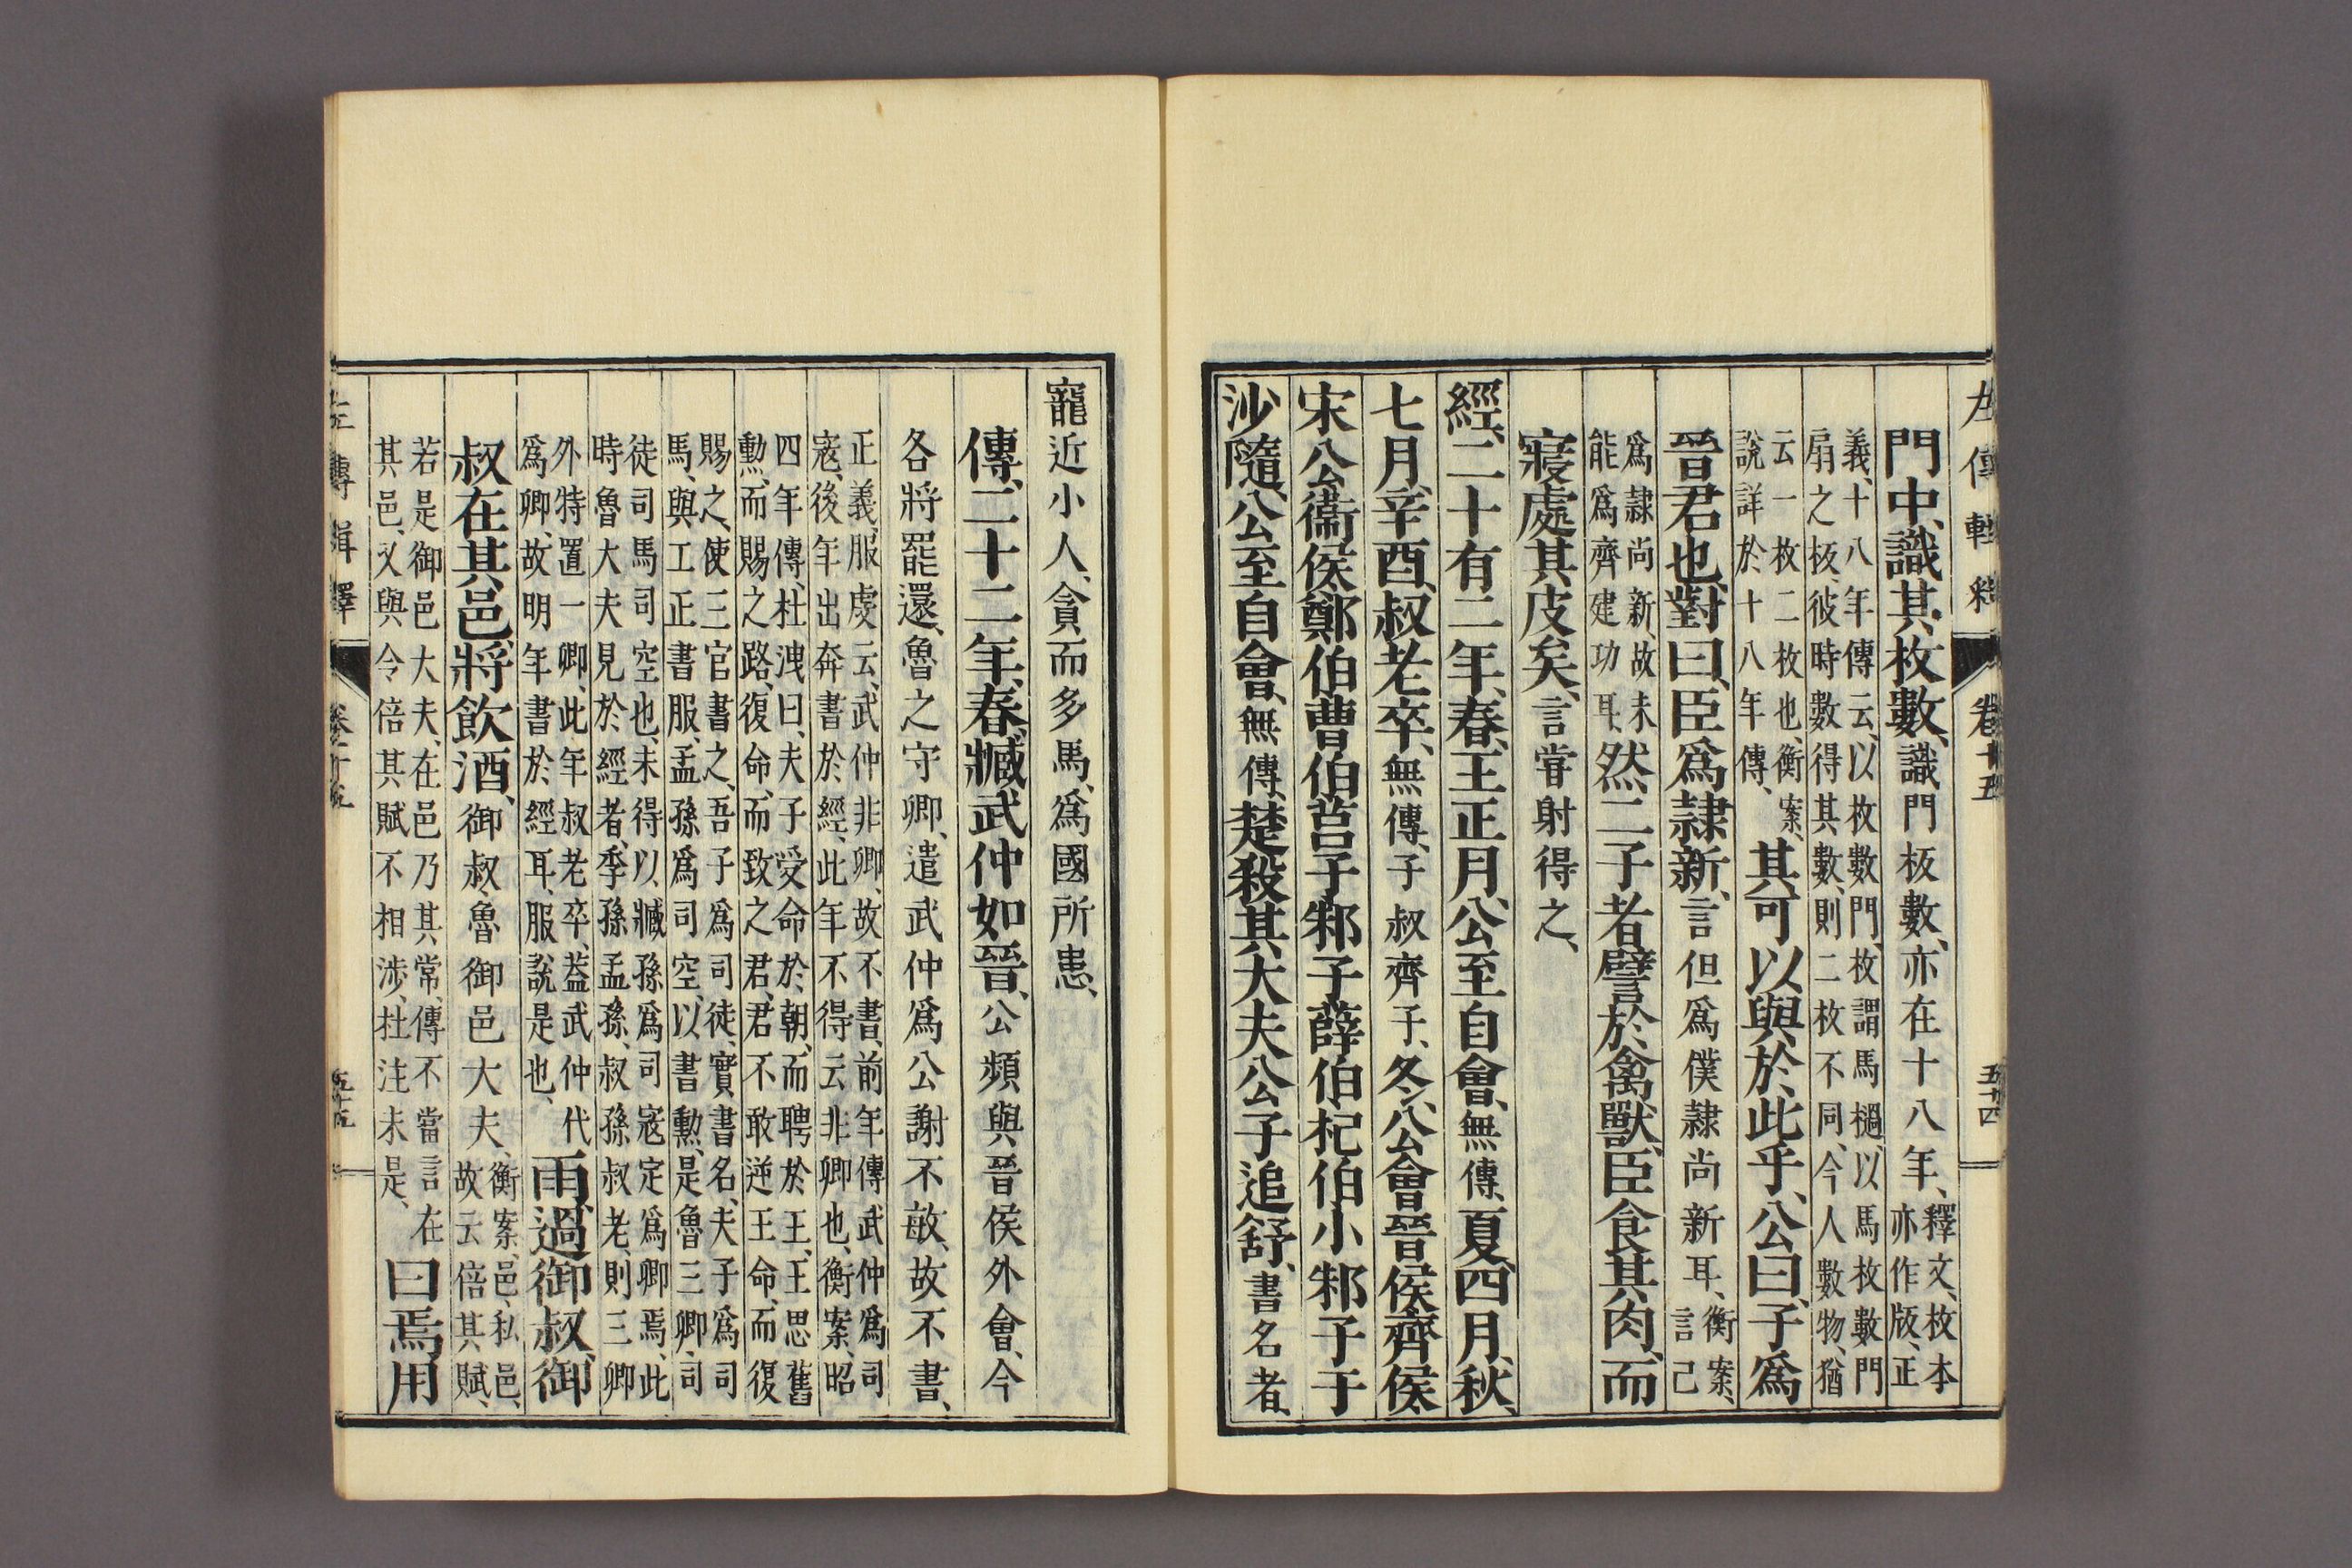 左傳輯釋 卷十五 五十四
門中、識其枚數、識門板數、亦在十八年、釋文、枚本亦作版、正
義、十八年傳云、以枚數門、枚謂馬檛、以馬枚數門
扇之板、彼時數得其數、則二枚不同、今人數物、猶
云一枚二枚也、衡案、
說詳於十八年傳、
其可以與於此乎、公曰、子爲
晉君也、對曰、臣爲隷新、言但爲僕隷尚新耳、衡案、言己
爲隷尚新、故未
能爲齊建功耳、
然二子者、譬於禽獸、臣食其肉、而
寢處其皮矣、言甞射得之、
經、二十有二年、春、王正月、公至自會、無傳、夏、四月、秋、
七月、辛酉、叔老卒、無傳、子叔齊子、冬、公會晉侯、齊侯、
宋公、衞侯、鄭伯、曹伯、莒子、邾子、薛伯、杞伯、小邾子于
沙隨、公至自會、無傳、楚殺其大夫公子追舒、書名者、
寵近小人、貪而多馬、爲國所患、
傳、二十二年、春、臧武仲如晉、公頻與晉侯外會、今
各將罷還、魯之守卿、遣武仲爲公謝不敏、故不書、
正義、服虔云、武仲非卿、故不書、前年傳武仲爲司
寇、後年出奔書於經、此年不得云非卿也、衡案、昭
四年傳、杜洩曰、夫子受命於朝、而聘於王、王思舊
勳、而賜之路、復命、而致之君、君不敢逆王命、而復
賜之、使三官書之、吾子爲司徒、實書名、夫子爲司
馬、與工正書服、孟孫爲司空、以書勳、是魯三卿、司
徒司馬司空也、未得以臧孫爲司寇定爲卿焉、此
時魯大夫見於經者、季孫孟孫、叔孫叔老、則三卿
外特置一卿、此年叔老卒、蓋武仲代
爲卿、故明年書於經耳、服說是也、
雨、過御叔、御
叔在其邑、將飲酒、御叔、魯御邑大夫、衡案、邑、私邑、故云倍其賦、
若是御邑大夫、在邑乃其常、傳不當言在
其邑、又與令倍其賦不相涉、杜注未是、
曰、焉用
左傳輯釋 卷十五 五十五